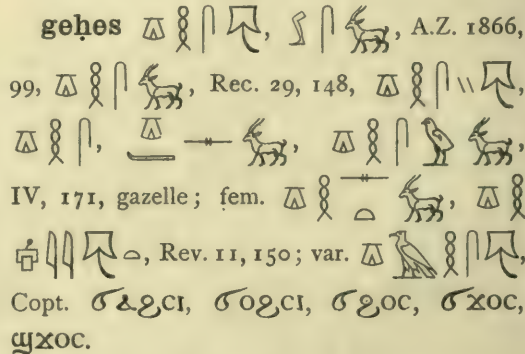 geḥes 𓎼𓎛𓋴𓄛, 𓂾𓋴𓃴, A.Z. 1866,
99, 𓎼𓎛𓋴𓃴, Rec. 29, 148, 𓎼𓎛𓋴𓏭𓄛,
𓎼𓎛𓋴, 𓎼𓊃𓃴, 𓎼𓎛𓋴𓅱𓃴,
IV, 171, gazelle; fem. 𓎼𓎛𓊃𓏏𓃴, 𓎼𓎛
𓇋𓇋𓄛𓏏, Rev. 11, 150; var. 𓎼𓄿𓎛𓋴𓄛,
Copt. ϭⲁϩⲥⲓ, ϭⲟϩⲥⲓ, ϭϩⲟⲥ, ϭⲭⲟⲥ,
ϣⲭⲟⲥ.